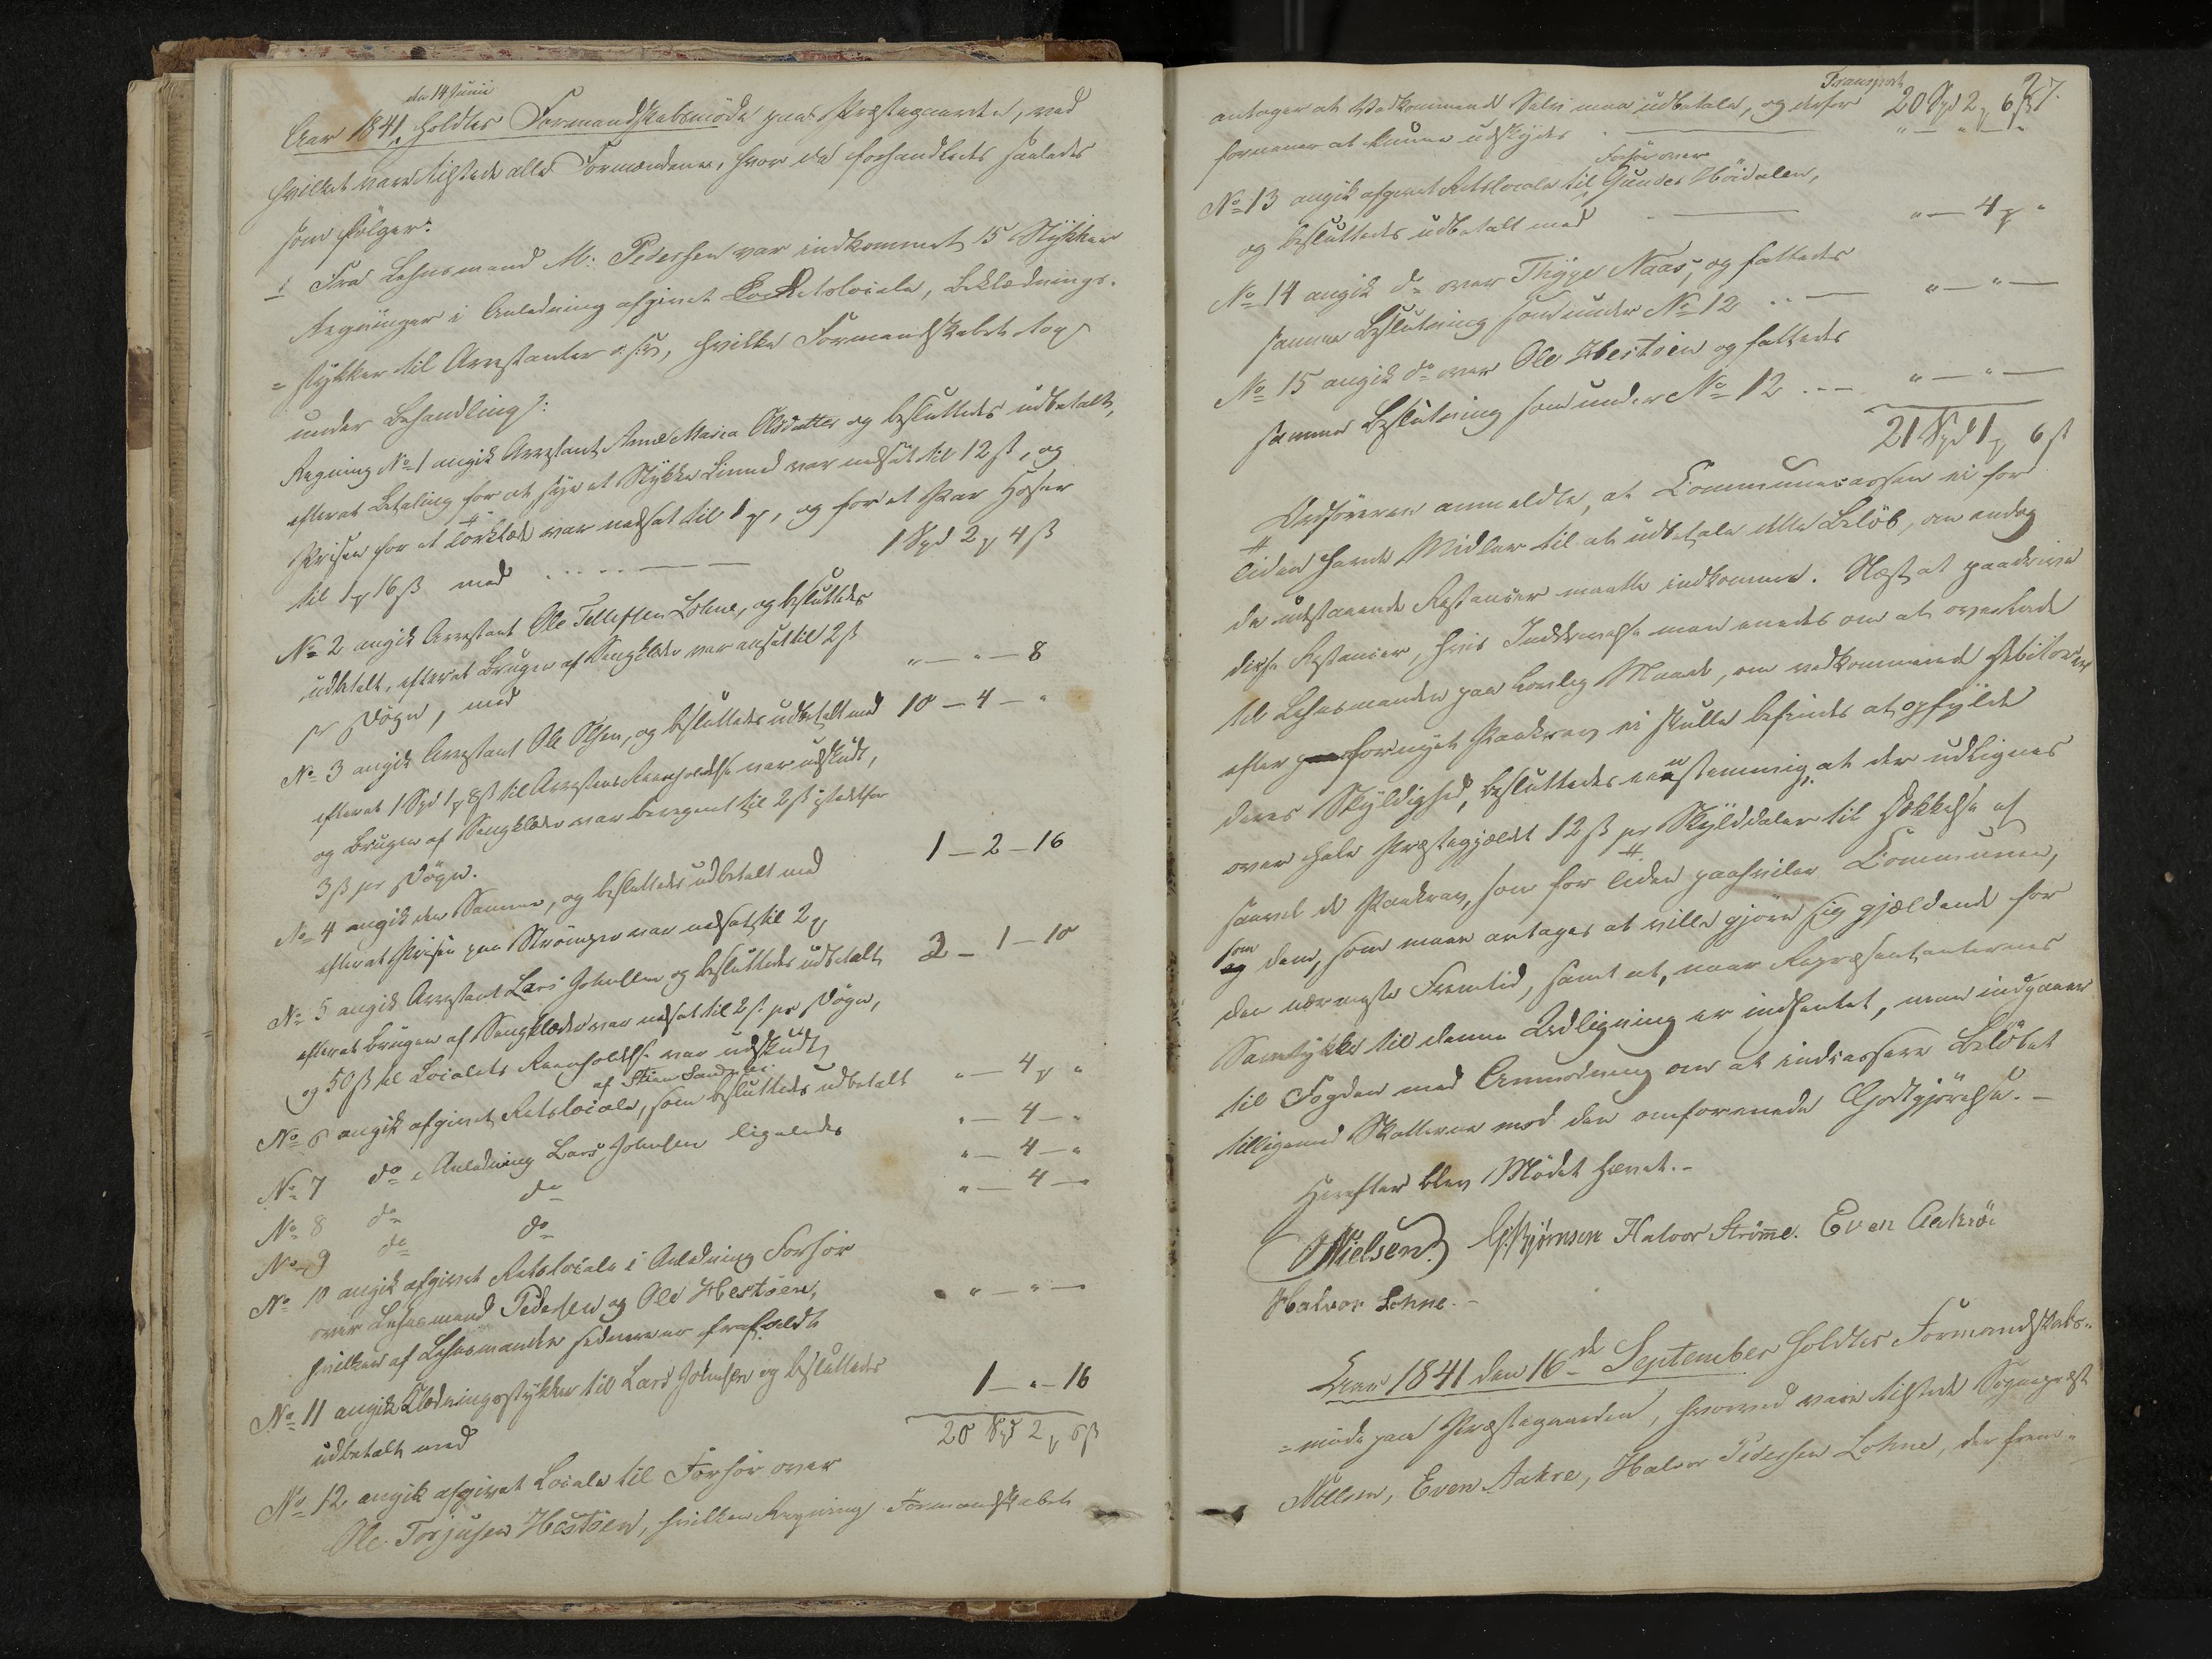 den 14 Junii
Aar 1841, holdtes Formandskabsmöde paa Præstegaarden, ved
hvilket vare tilstede alle Formændene, hvor da forhandledes saaledes
som fölger:
1 Fra Lehnsmand M: Pedersen var indkommet 15 Stykker
Regninger i Anledning afgivet Retslocale, Beklædnings-
=stykker til Arrestanter o: s: v:, hvilke Formandskabet tog
under Behandling:
Regning No 1 angik Arrestant Anne Maria Olsdatter og besluttedes udbetalt,
efterat Betaling for at sye et Stykke Linned var nedsat til 12 ß, og
Prisen for et Törklæde var nedsat til 1 , og for et Par Hoser
til 1 16 ß med 1 Spd 2 4 ß
No 2 angik Arrestant Ole Tellefsen Lohne, og besluttedes
udbetalt, efterat Brugen af Sengklæder var ansat til 2 ß
pr Dögn, med " — " — 8
No 3 angik Arrestant Ole Olsen, og besluttedes udbetalt med 10 — 4 — "
efterat 1 Spd 1 8 ß til Arrestens Reenholdelse var udskudt,
og Brugen af Sengklæder var beregnet til 2 ß istedetfor
3 ß pr Dögn.
No 4 angik den Samme, og besluttedes udbetalt med 1 — 2 — 16
efterat Prisen paa Strömper var nedsat til 2
No 5 angik Arrestant Lars Johnsen og besluttedes udbetalt 3 — 1 — 10
efterat Brugen af Sengklæder var nedsat til 2 ß pr Dögn,
og 50 ß til Localets Reenholdelse var udskudt
af Steen
No 6 angik afgivet Retslocale, som besluttedes udbetalt " — 4 "
No 7 do i Anledning Lars Johnsen ligeledes " — 4 — "
No 8 do do " — 4 — "
No 9 do do " — 4 — "
No 10 angik afgivet Retslocale i Anledning Forhör
over Lehnsmand Pedersen og Ole Hestöen, " — " —
hvilken af Lehnsmanden sednere er frafaldt
No 11 angik Klædningsstykker til Lars Johnsen og besluttedes
udbetalt med 1 — " — 16
20 Spd 2 6 ß
No 12 angik afgivet Locale til Forhör over
Ole Torjusen Hestöen, hvilken Regning Formandskabet
27.
Transport
antager at Vedkommende Selv maa udbetale, og derfor 20 Spd 2 6 ß
formener at kunne udskydes " — " — "
Forhör over
No 13 angik afgivet Retslocale til Gunder Höidalen,
og besluttedes udbetalt med " — 4 "
No 14 angik do over Thyge Naas, og fattedes
samme Beslutning som under No 12 " — " —
No 15 angik do over Ole Hestöen og fattedes
samme Beslutning som under No 12 " — " —
21 Spd 1 6 ß
Ordföreren anmeldte, at Communecassen ei for
Tiden havde Midler til at udbetale dette Belöb, om endog
de udestaaende Restancer maatte indkomme. Næst at paadrive
disse Restancer, hvis Inddrivelse man enedes om at overlade
til Lehnsmanden paa lovlig Maade, om vedkommende Debitorer
efter fornyet Paakrav ei skulle befindes at opfylde
deres Skyldighed, besluttedes eenstemmig, at der udlignes
over hele Præstegjeldet 12 ß pr Skylddaler til Dækkelse af
saavel de Paakrav, som for Tiden paahviler Communen,
som dem, som maae antages at ville gjöre sig gjældende for
den nærmeste Fremtid, samt at, naar Repræsentanternes
Samtykke til denne Udligning er indhentet, man indgaaer
til Fogden med Anmodning om at indcassere Belöbet
tilligemed Skatterne mod den omforenede Godtgjörelse. —
Herefter blev Mödet hævet. —
Nielsen. G. Bjørnsen Halvor Strömme. Even Aakröe
Halvor Lohne. —
Aar 1841 den 16de September holdtes Formandskabs-
=möde paa Præstegaarden, hvorved vare tilstede Sognepræst
Nielsen, Even Aakre, Halvor Pedersen Lohne, der frem-